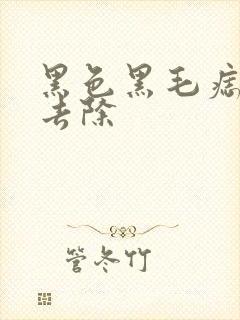 黑色黑毛痣
去除
管冬竹